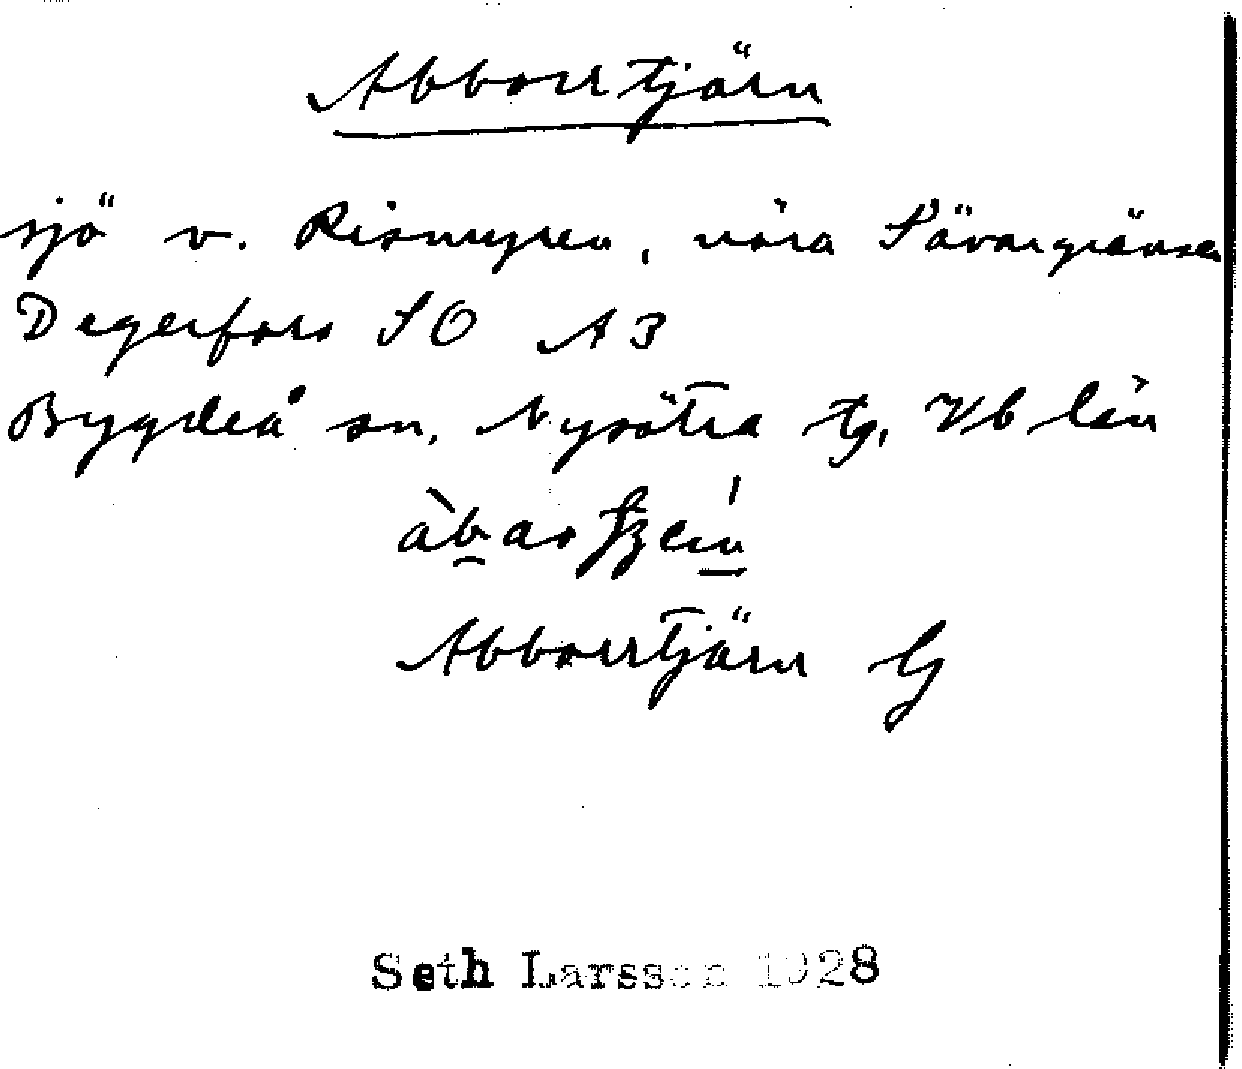 Abborrtjärn
sjö v. Rismyren, nära Sävargränsen
Degerfors SO A3
Bygdeå sn, Nysätra tg, Vb län
Abborrtjärn G
Seth Larsson 1928